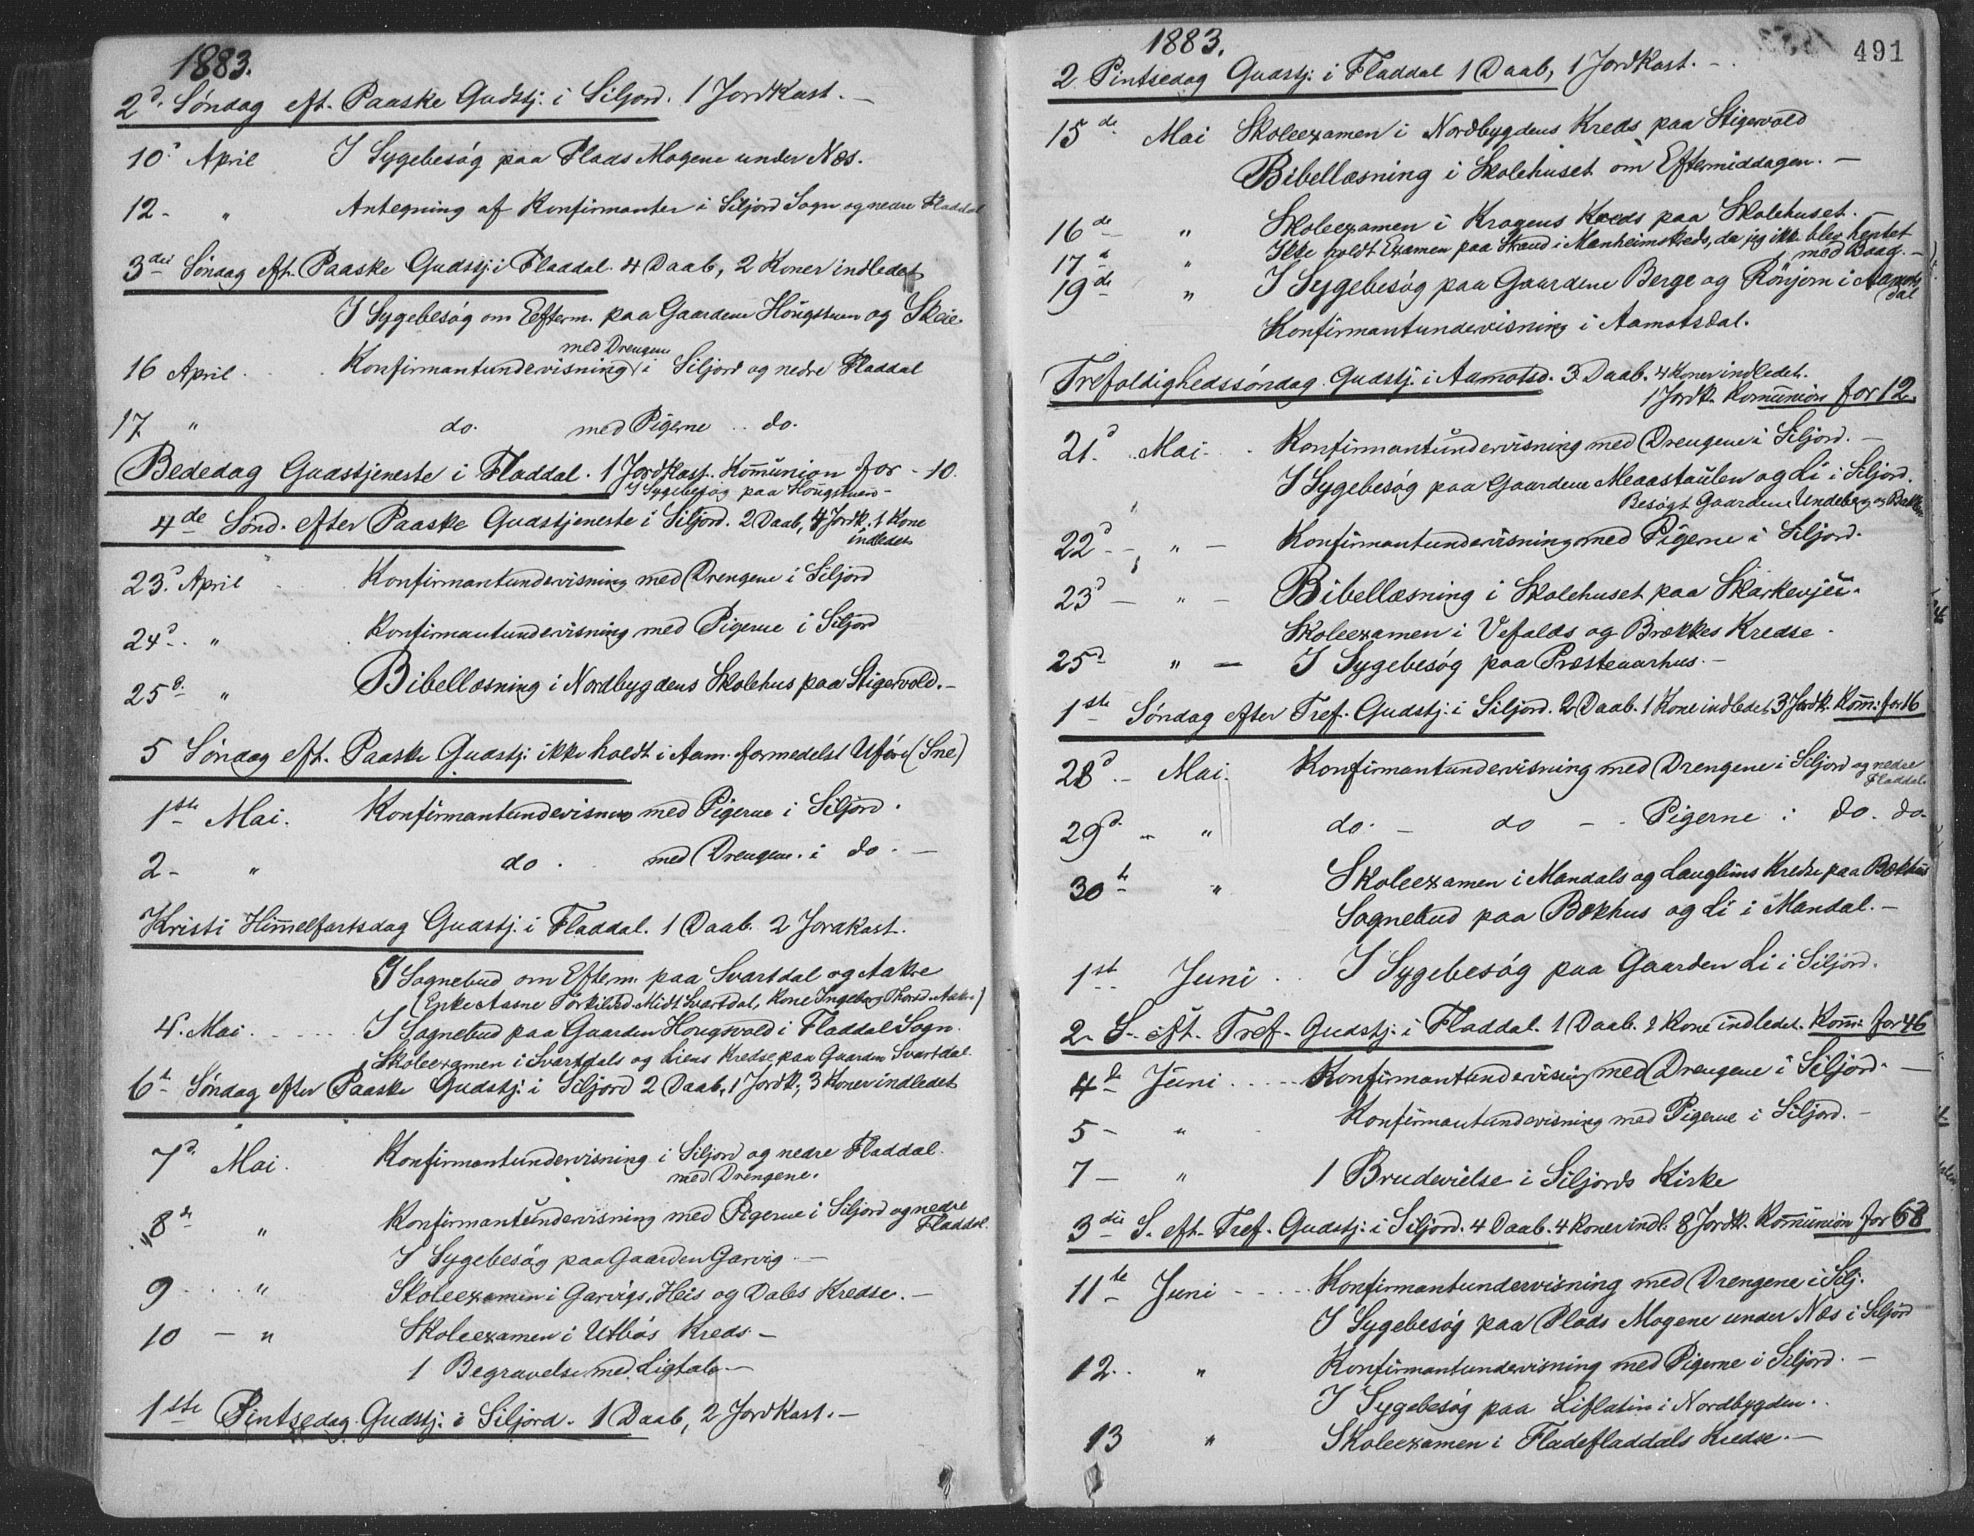 1883.
2d. Søndag eft. Paaske Gudstj. i Siljord. 1 Jordkast. —
10d April I Sygebesøg paa Plads Mogene under Næs.
12 - " Antegning af Konfirmanter i Siljord Sogn og nedre Fladdal
3die Søndag eft. Paaske Gudstj. i Fladdal. 4 Daab, 2 Koner indledet
I Sygebesøg om Efterm. paa Gaardene Høugstuen og Skeie.
med Drengene
16 April . Konfirmantundervisning i Siljord og nedre Fladdal
17 " do. med Pigerne .. do.
Bededag Gudstjeneste i Fladdal. 1 Jordkast. Kommunion for - 10.
I Sygebesøg paa Høugstuen -
4de Sønd. efter Paaske Gudstjeneste i Siljord. 2 Daab, 4 Jordk. 1 Kone
indledet
23d. April Konfirmantundervisning med Drengene i Siljord
24d. " Konfirmantundervisning med Pigerne i Siljord
25d. " Bibellæsning i Nordbygdens Skolehus paa Stigervold. -
5 Søndag eft. Paaske Gudstj. ikke holdt i Aam. formedelst Uføre (Sne)
1ste Mai. Konfirmantundervisning med Pigerne i Siljord.
2 - " do. med Drengene. i do. —
Kristi Himmelfartsdag Gudstj. i Fladdal. 1 Daab. 2 Jordkast.
I Sognebud om Efterm. paa Svartdal og Aakre
(Enke Aasne Torkilsd. Midt Svartdal, Kone Ingeborg Thorsd. Aakre)
4. Mai. I Sognebud paa Gaarden Hougsvold i Fladdal Sogn.
Skoleexamen i Svartdals og Liens Kredse, paa Gaarden Svartdal.
6t Søndag efter Paaske Gudstj. i Siljord 2 Daab, 1 Jordk., 3 Koner indledet
7d. Mai. Konfirmantundervisning i Siljord og nedre Fladdal.
med Drengene.
8de " Konfirmantundervisning med Pigerne i Siljord og nedre
Fladdal.
I Sygebesøg paa Gaarden Garvig. —
9 " Skoleexamen i Garvigs, Heis og Dales Kredse. —
10 — " Skoleexamen i Utbøs Kreds —
1 Begravelse med Ligtale —
1ste Pintsedag. Gudstj. i Siljord. 1 Daab, 2 Jordkast. —
1883.
491
2 Pintsedag Gudstj. i Fladdal 1 Daab, 1 Jordkast. -
15de Mai Skoleexamen i Nordbygdens Kreds paa Stigervold
Bibellæsning i Skolehuset om Eftermiddagen. —
16de " Skoleexamen i Kragens Kreds paa Skolehuset.
17d " Ikke holdt Examen paa Strand i Manheimskreds, da jeg ikke blev hentet
med Baad. —
19de " I Sygebesøg paa Gaardene Berge og Rønjom i Aamots
dal
Konfirmantundervisning i Aamotsdal.
Trefoldighedssøndag. Gudstj. i Aamotsd. 3 Daab. 4 Koner indledet.
1 Jordk. Kommunion for 12.
21d. Mai - Konfirmantundervisning med Drengene i Siljord. —
I Sygebesøg paa Gaardene Meaastaulen og Li i Siljord.
Besøgt Gaardene Undeberg og Bakken
22d — " — Konfirmantundervisning med Pigerne i Siljord.
23d — " — Bibellæsning i Skolehuset paa Skarkevjeu.
Skoleexamen i Vefalds og Brækkes Kredse.
25d " — I Sygebesøg paa Præsteaarhus. —
1ste Søndag efter Tref. Gudstj. i Siljord. 2 Daab. 1 Kone indledet, 3 Jordk. Komm. for 16
28d. - Mai. Konfirmantundervisning med Drengene i Siljord og nedre
Fladdal.
29d. - " do. — do — . Pigerne i do. do.
30te " Skoleexamen i Mandals og Lauglims Kredse paa Bækhus
Sognebud paa Bækhus og Li i Mandal. —
1st Juni . I Sygebesøg paa Gaarden Li i Siljord.
2. S. eft. Tref. Gudstj. i Fladdal. 1 Daab. 1 Kone indledet. Komm. for 46
4de Juni ..... Konfirmantundervising med Drengene i Siljord. —
5 — " Konfirmantundervisning med Pigerne i Siljord. —
7 — " 1 Brudevielse i Siljords Kirke
3die S. eft. Tref. Gudstj. i Siljord. 4 Daab. 4 Koner indl. 8 Jordk. Kommunion for 68
11te Juni - .... Konfirmantundervisning med Drengene i Silj.
I Sygebesøg paa Plads Mogene under Næs i Siljord
12.. " Konfirmantundervisning med Pigerne i Siljord. —
I Sygebesøg paa Liflatin i Nordbygden..
13 " Skoleexamen i Fladefladdals Kredse. —